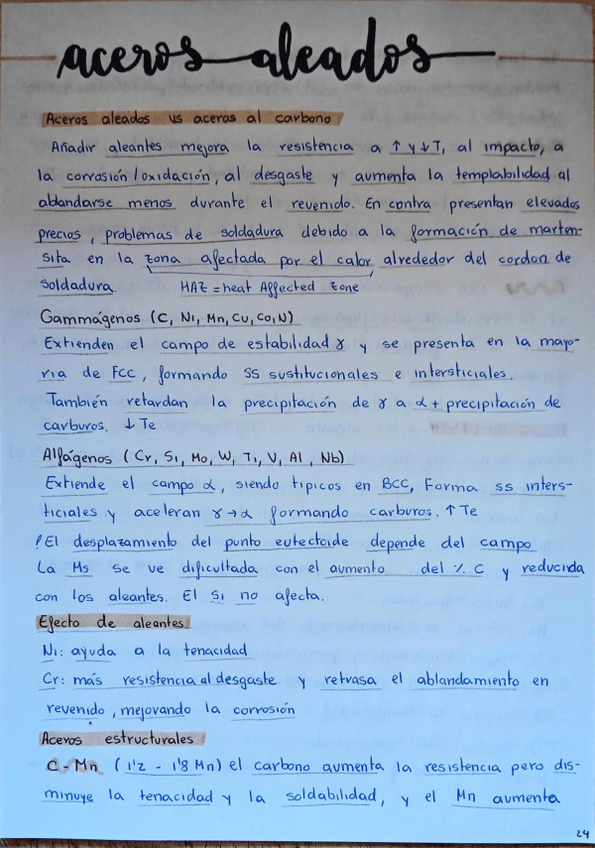 aceros aleados
Aceros aleados vs aceros al carbono
Añadir aleantes mejora la resistencia a ↑ y ↓ T, al impacto, a
la corrosión/oxidación, al desgaste y aumenta la templabilidad al
ablandarse menos durante el revenido. En contra presentan elevados
precios, problemas de soldadura debido a la formación de marten-
sita en la zona afectada por el calor alrededor del cordon de
soldadura. HAZ = heat Affected zone
Gammágenos (C, Ni, Mn, Cu, Co, N)
Extienden el campo de estabilidad γ y se presenta en la mayo-
ria de FCC, formando SS sustitucionales e intersticiales.
También retardan la precipitación de γ a α + precipitación de
carburos. ↓ Te
Alfágenos (Cr, Si, Mo, W, Ti, V, Al, Nb)
Extiende el campo α, siendo tipicos en BCC, Forma ss inters-
ticiales y aceleran γ → α formando carburos. ↑ Te
!El desplazamiento del punto eutectoide depende del campo
La Ms se ve dificultada con el aumento del % C y reducida
con los aleantes. El Si no afecta.
Efecto de aleantes
Ni: ayuda a la tenacidad
Cr: más resistencia al desgaste y retrasa el ablandamiento en
revenido, mejorando la corrosión
Aceros estructurales
C-Mn (1'2 - 1'8 Mn) el carbono aumenta la resistencia pero dis-
minuye la tenacidad y la soldabilidad, y el Mn aumenta
24